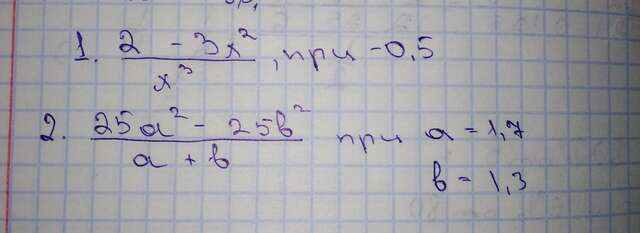 1. (2 - 3x²)/x³, при -0,5
2. (25a² - 25b²)/(a + b) при a = 1,7
b = 1,3